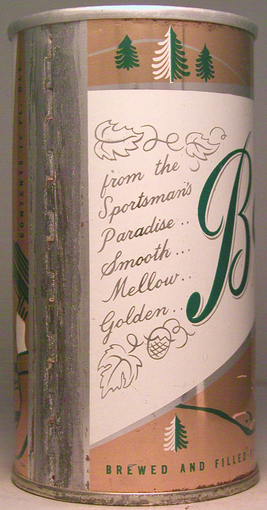 CONTENTS 12 FL. OZ.
from the
Sportsman's
Paradise..
Smooth...
Mellow..
Golden..
B
BREWED AND FILLED